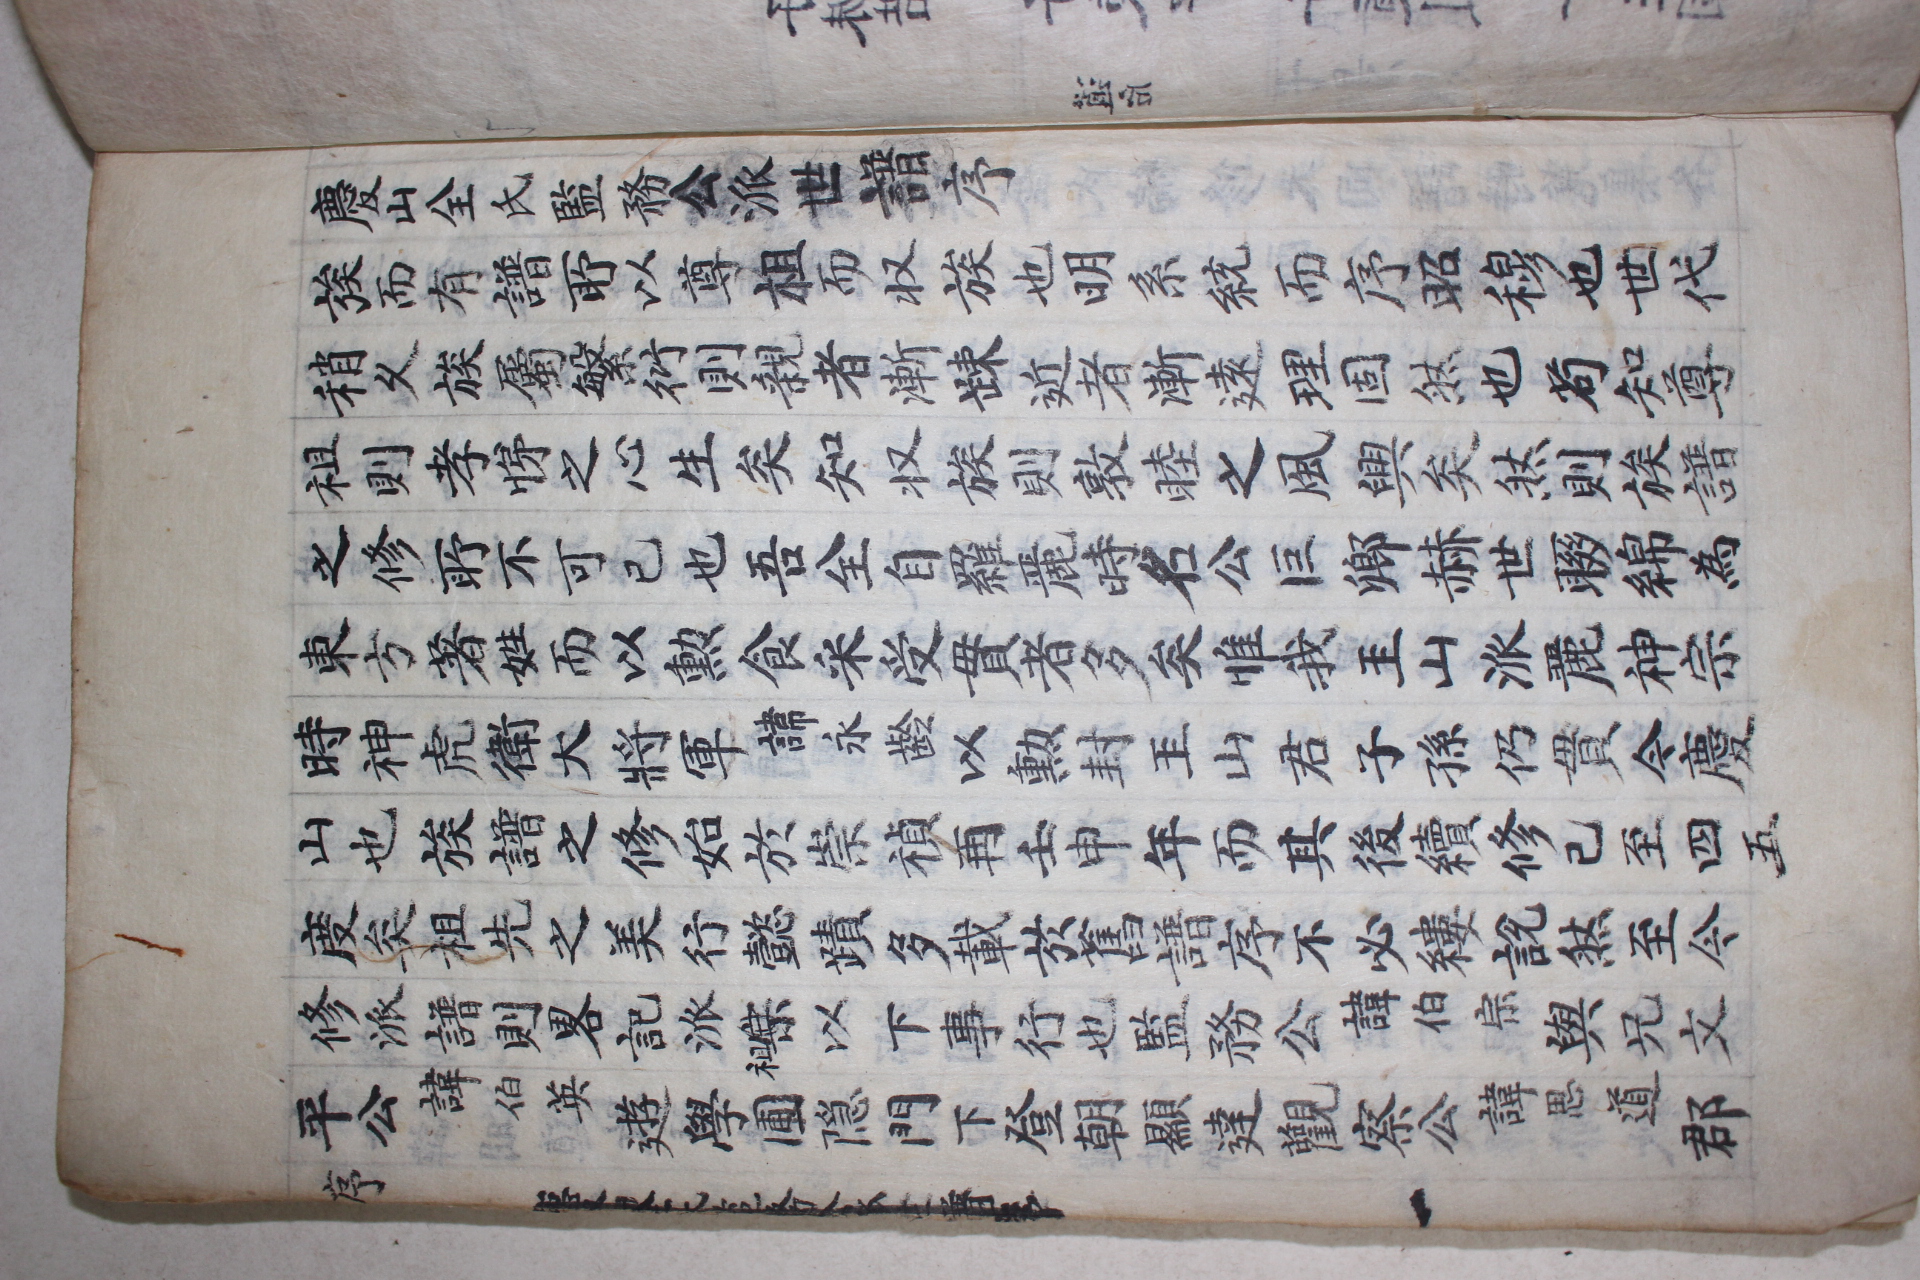 慶山全氏監務公派世譜序
族而有譜所以尊祖而収族也明系統而序昭穆也世代
稍久族屬繁衍則親者漸踈近者漸遠理固然也苟知尊
祖則孝悌之心生矣知収族則敦睦之風興矣然則族譜
之修所不可已也吾全自羅麗時名公巨卿赫世聯綿為
東方著姓而以勲食采受貫者多矣惟我玉山派麗神宗
時神虎衛大將軍諱永齡以勲封玉山君子孫仍貫今慶
山也族譜之修始於崇禎再壬申年而其後續修已至四五
度矣祖先之美行懿蹟多載於舊譜序不必縷說然至今
修派譜則畧記派祖以下事行也監務公諱伯宗與兄文
平公諱伯英遊學圃隱門下登朝顯達觀察公諱思道郡
序